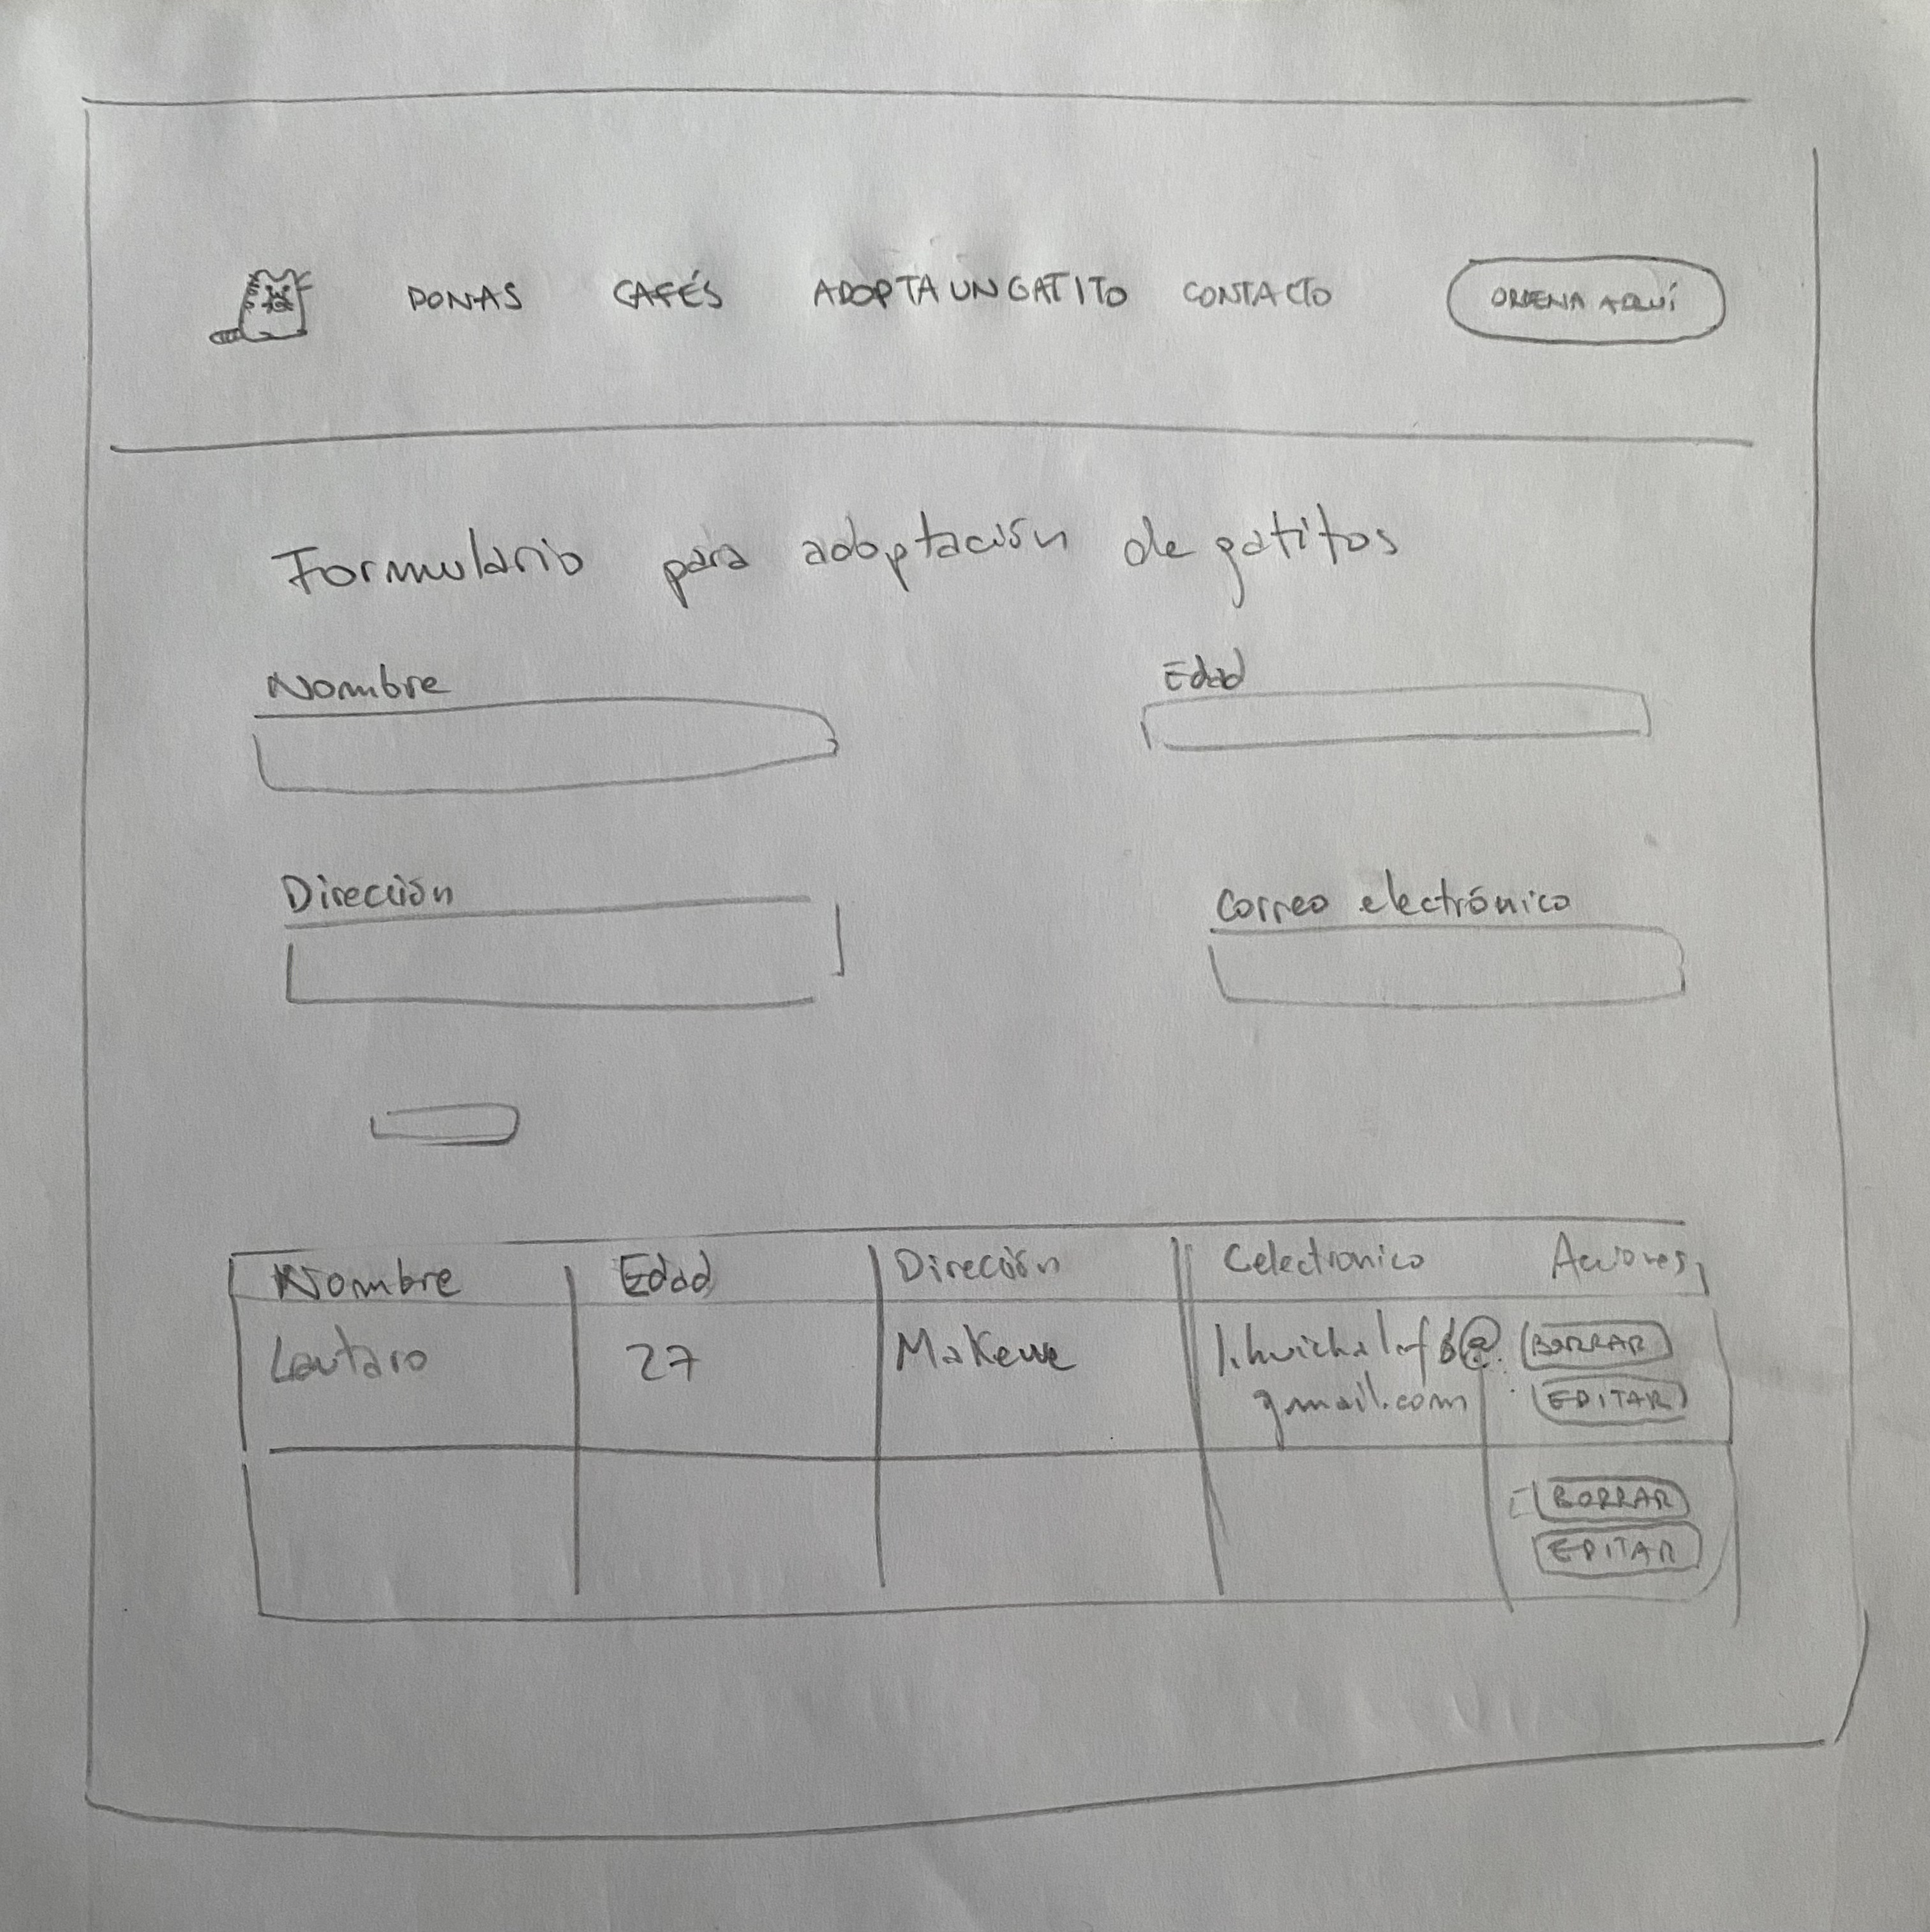 DONAS CAFÉS ADOPTA UN GATITO CONTACTO ORDENA AQUÍ
Formulario para adoptación de gatitos
Nombre Edad
Dirección Correo electrónico
Nombre Edad Dirección Celectronico Acciones
Lautaro 27 Makewe l.huichalaf6@ BORRAR
gmail.com EDITAR
BORRAR
EDITAR